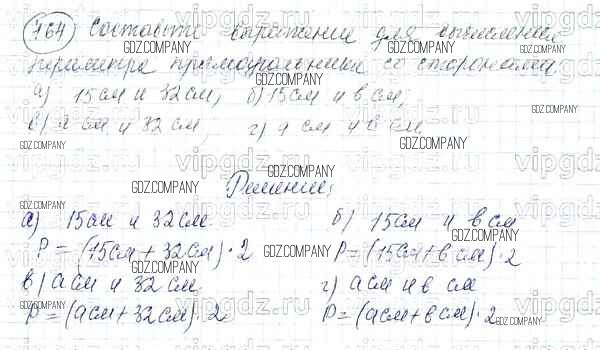 764 Составьте выражение для вычисления
периметра прямоугольника со сторонами:
а) 15 см и 32 см, б) 15 см и в см;
в) а см и 32 см, г) а см и в см.
Решение:
а) 15 см и 32 см
P = (15 см + 32 см) · 2
б) 15 см и в см
P = (15 см + в см) · 2
в) а см и 32 см
P = (а см + 32 см) · 2
г) а см и в см
P = (а см + в см) · 2
GDZ.COMPANY
vipgdz.ru